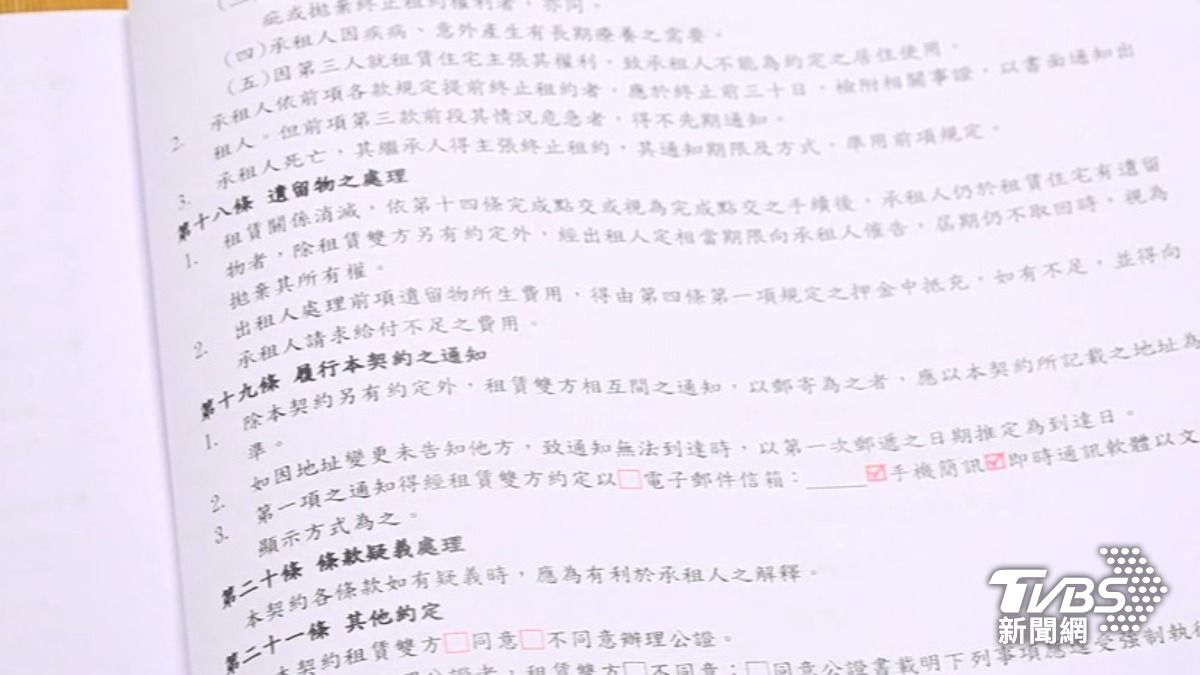 疵或拋棄終止租約權利者，亦同。
(四)承租人因疾病、意外產生有長期療養之需要。
(五)因第三人就租賃住宅主張其權利，致承租人不能為約定之居住使用。
2. 承租人依前項各款規定提前終止租約者，應於終止前三十日，檢附相關事證，以書面通知出
租人。但前項第三款前段其情況危急者，得不先期通知。
3. 承租人死亡，其繼承人得主張終止租約，其通知期限及方式，準用前項規定。
第十八條 遺留物之處理
1. 租賃關係消滅，依第十四條完成點交或視為完成點交之手續後，承租人仍於租賃住宅有遺留
物者，除租賃雙方另有約定外，經出租人定相當期限向承租人催告，屆期仍不取回時，視為
拋棄其所有權。
2. 出租人處理前項遺留物所生費用，得由第四條第一項規定之押金中抵充，如有不足，並得向
承租人請求給付不足之費用。
第十九條 履行本契約之通知
1. 除本契約另有約定外，租賃雙方相互間之通知，以郵寄為之者，應以本契約所記載之地址為
準。
2. 如因地址變更未告知他方，致通知無法到達時，以第一次郵遞之日期推定為到達日。
3. 第一項之通知得經租賃雙方約定以□電子郵件信箱：_____☑手機簡訊☑即時通訊軟體以文
顯示方式為之。
第二十條 條款疑義處理
本契約各條款如有疑義時，應為有利於承租人之解釋。
第二十一條 其他約定
本契約租賃雙方□同意□不同意辦理公證。
公證者，租賃雙方□不同意；□同意公證書載明下列事項應逕受強制執行
TVBS
新聞網